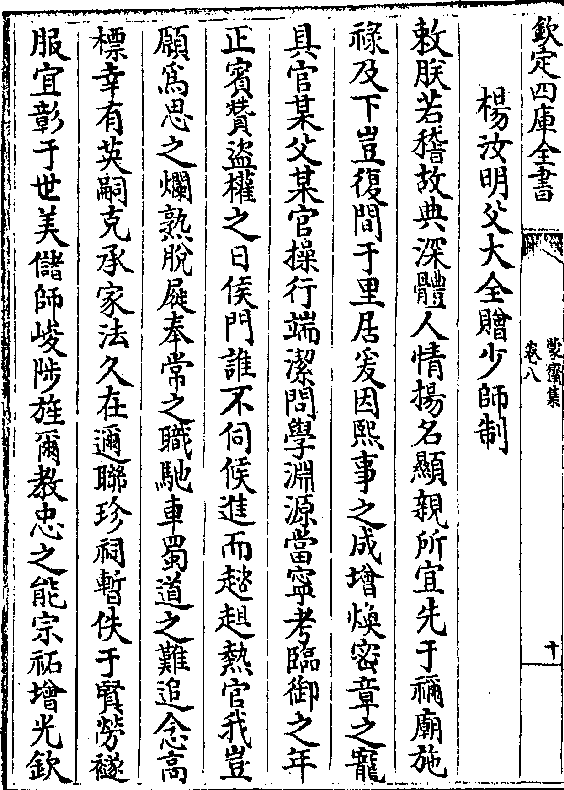 欽定四庫全書
蒙齋集
卷八
十
楊汝明父大全贈少師制
敕朕若稽故典深體人情揚名顯親所宜先于禰廟施
祿及下豈復間于里居爰因熙事之成增煥密章之寵
具官某父某官操行端潔問學淵源當寧考臨御之年
正賓賛盜權之日侯門誰不伺候進而趑趄熱官我豈
願爲思之爛熟脫屣奉常之職馳車蜀道之難追念高
標幸有英嗣克承家法久在邇聯珍祠暫佚于賢勞襚
服宜彰于世美儲師峻陟旌爾教忠之能宗祏增光欽